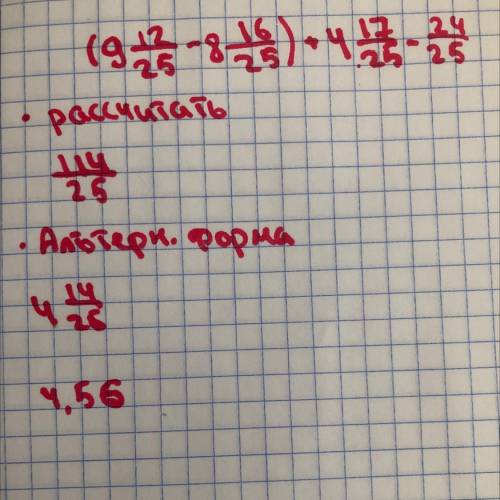 (9 12/25 - 8 16/25) + 4 17/25 - 24/25
· рассчитать
114/25
· Альтерн. форма
4 14/25
4,56